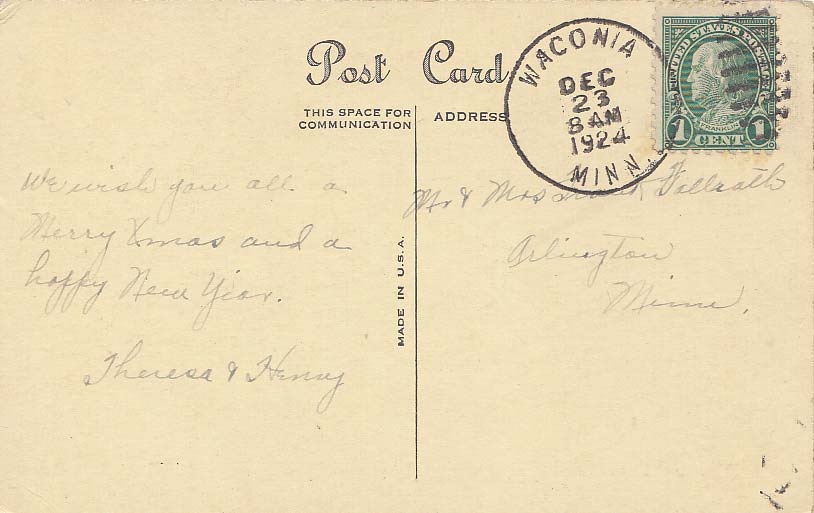 Post Card
THIS SPACE FOR
COMMUNICATION
ADDRESS
WACONIA
DEC
23
8 AM
1924
MINN.
UNITED STATES POSTAGE
FRANKLIN
1 CENT 1
We wish you all a
Merry Xmas and a
happy New Year.
Theresa & Henry
MADE IN U.S.A.
Mr & Mrs
Arlington
Minn.